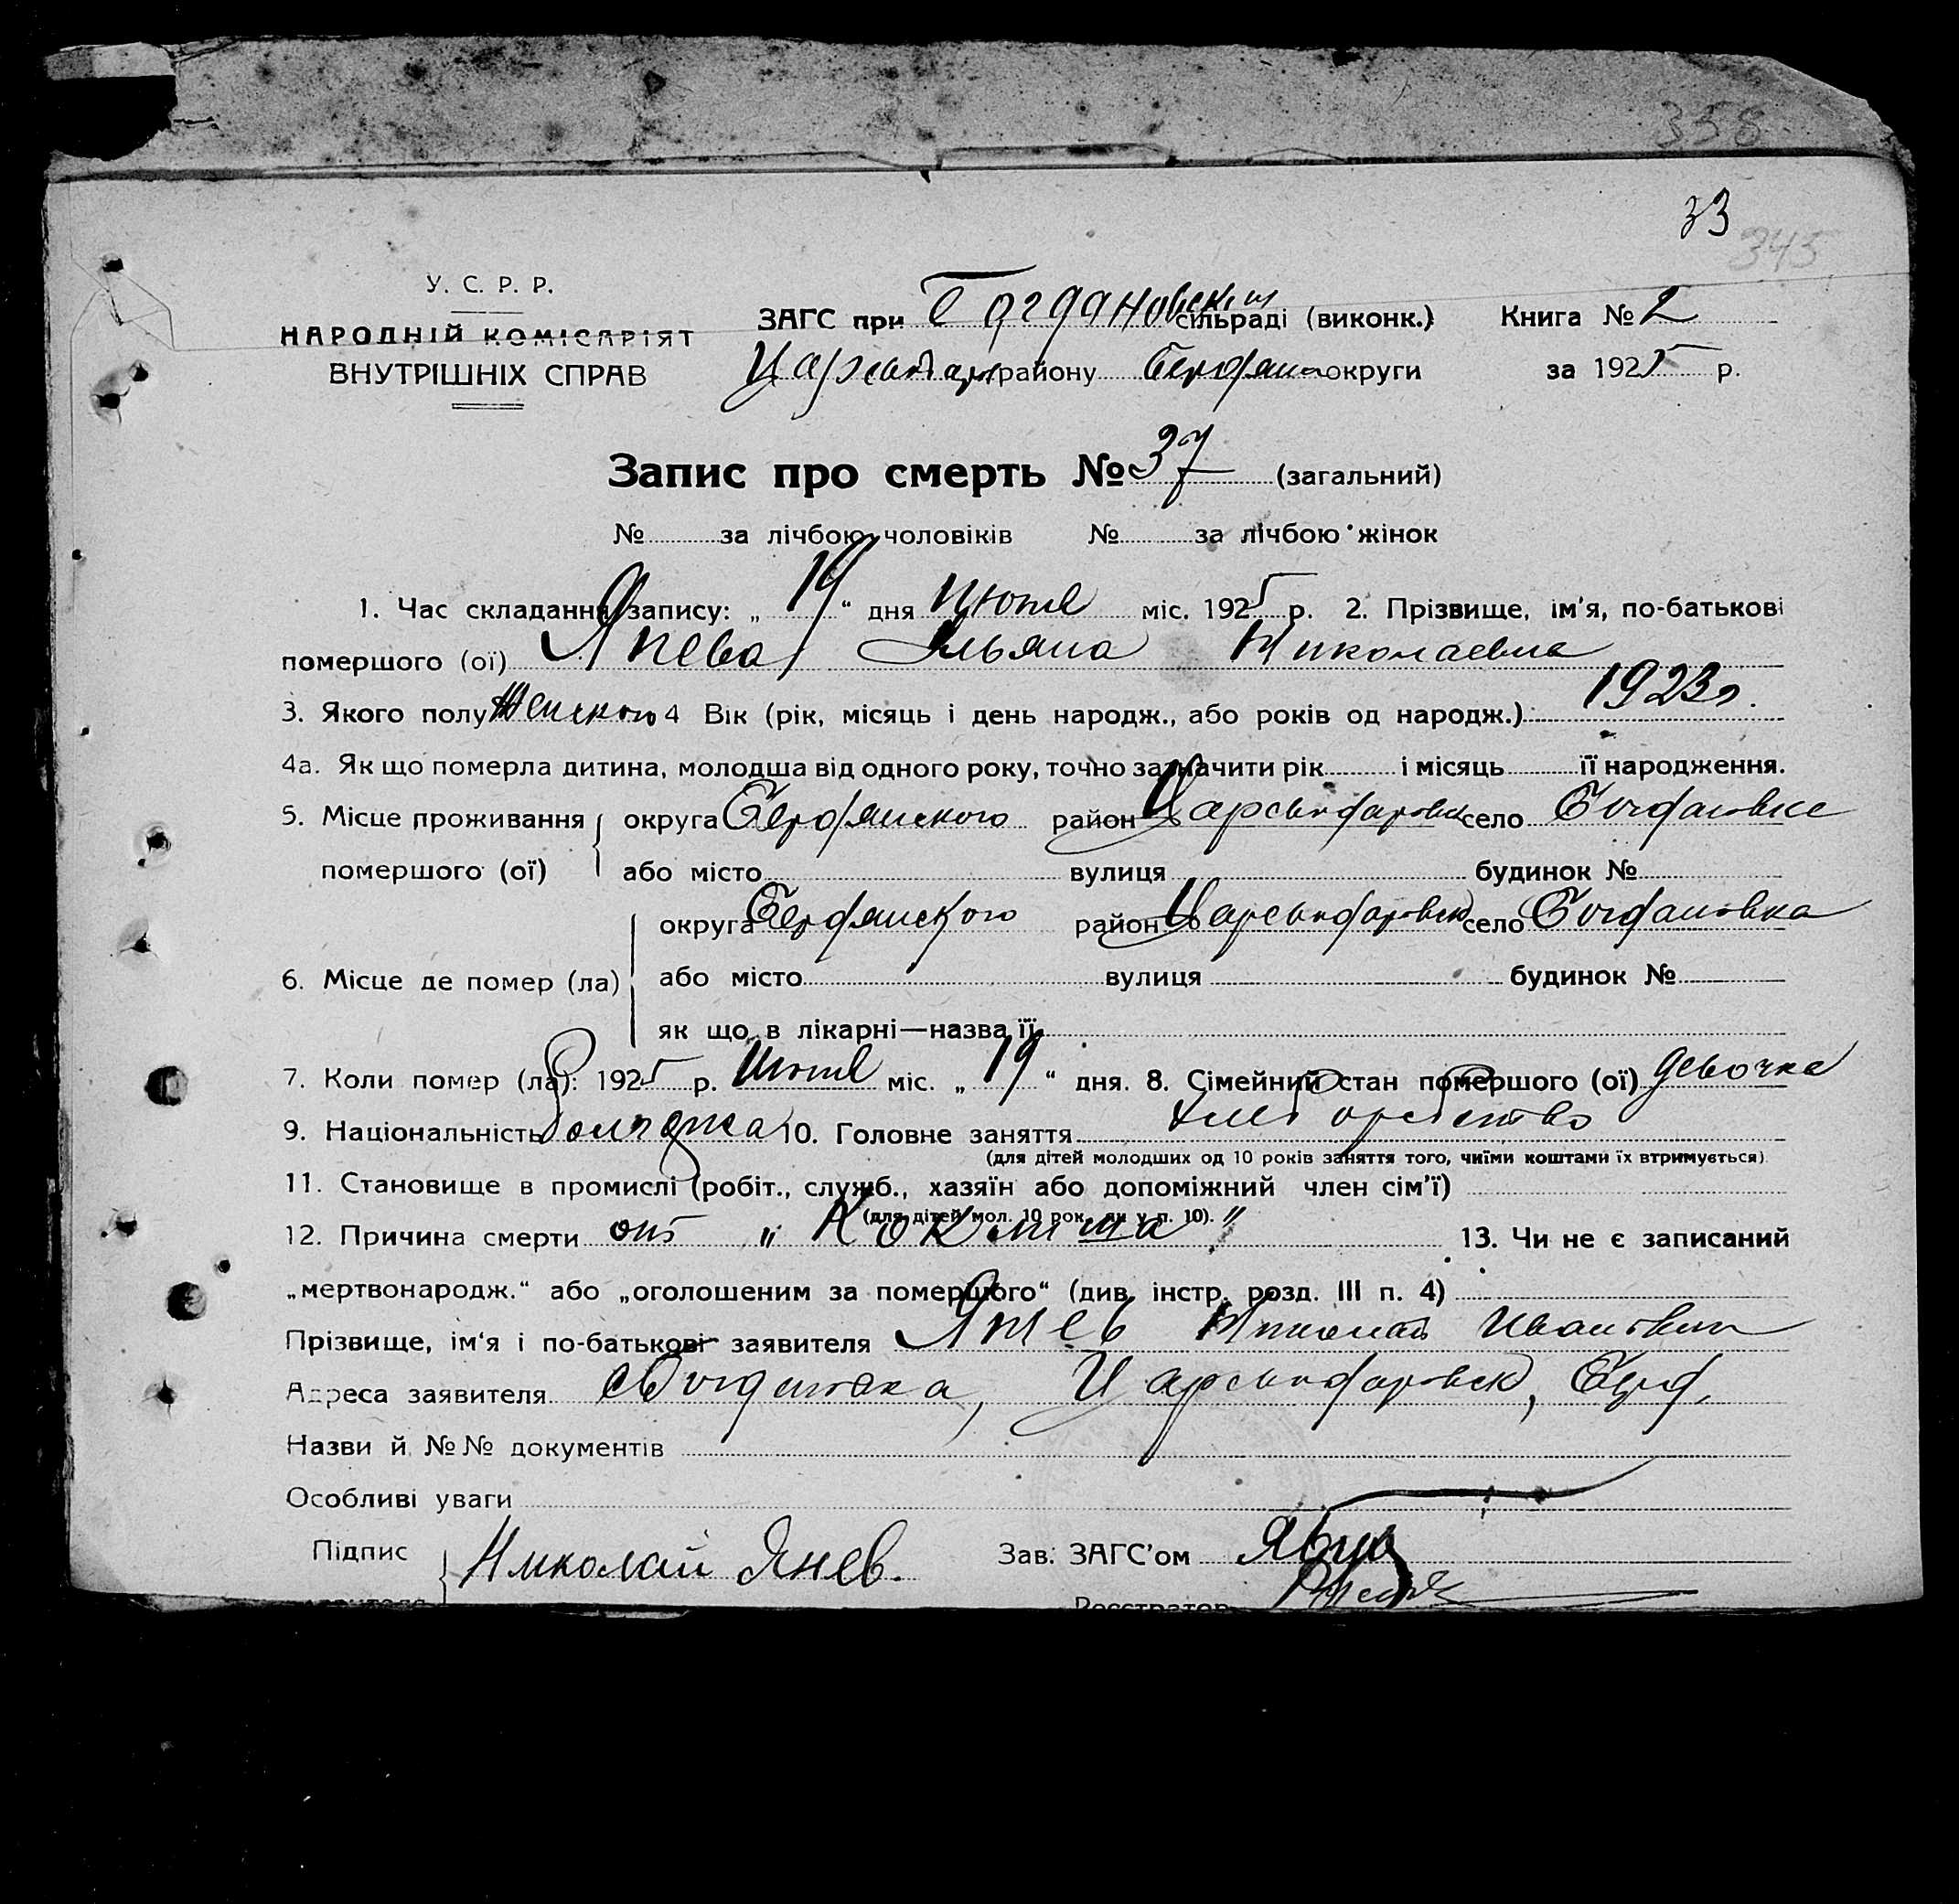 358
33
345
У. С. Р. Р.
НАРОДНІЙ КОМІСАРІЯТ
ВНУТРІШНІХ СПРАВ
ЗАГС при Богдановский сільраді (виконк.) Книга № 2
району округи за 1925 р.
Запис про смерть № 37 (загальний)
№ за лічбою чоловіків № за лічбою жінок
1. Час складання запису: „ 19 “ дня Июля міс. 1925 р. 2. Прізвище, ім'я, по-батькові
помершого (ої) Янева Ульяна Николаевна
3. Якого полу Женского 4 Вік (рік, місяць і день народж., або років од народж.) 1923г.
4а. Як що померла дитина, молодша від одного року, точно зазначити рік і місяць її народження.
5. Місце проживання округа Бердянского район село Богдановке
помершого (ої) або місто вулиця будинок №
округа Бердянского район село Богдановка
6. Місце де помер (ла) або місто вулиця будинок №
як що в лікарні—назва її
7. Коли помер (ла): 1925 р. Июля міс. „ 19 “ дня. 8. Сімейний стан помершого (ої) девочка
9. Національність болгарка 10. Головне заняття
(для дітей молодших од 10 років заняття того, чиїми коштами їх втримується)
11. Становище в промислі (робіт., служб., хазяїн або допоміжний член сім'ї)
(для дітей мол. 10 рок., як у п. 10).
12. Причина смерти от „ Коклюша “ 13. Чи не є записаний
„мертвонародж.“ або „оголошеним за помершого“ (див. інстр. розд. III п. 4)
Прізвище, ім‘я і по-батькові заявителя Янев Николай Иванович
Адреса заявителя Богдановка, Берд.
Назви й №№ документів
Особливі уваги
Підпис Николай Янев. Зав. ЗАГС'ом
Реєстратор